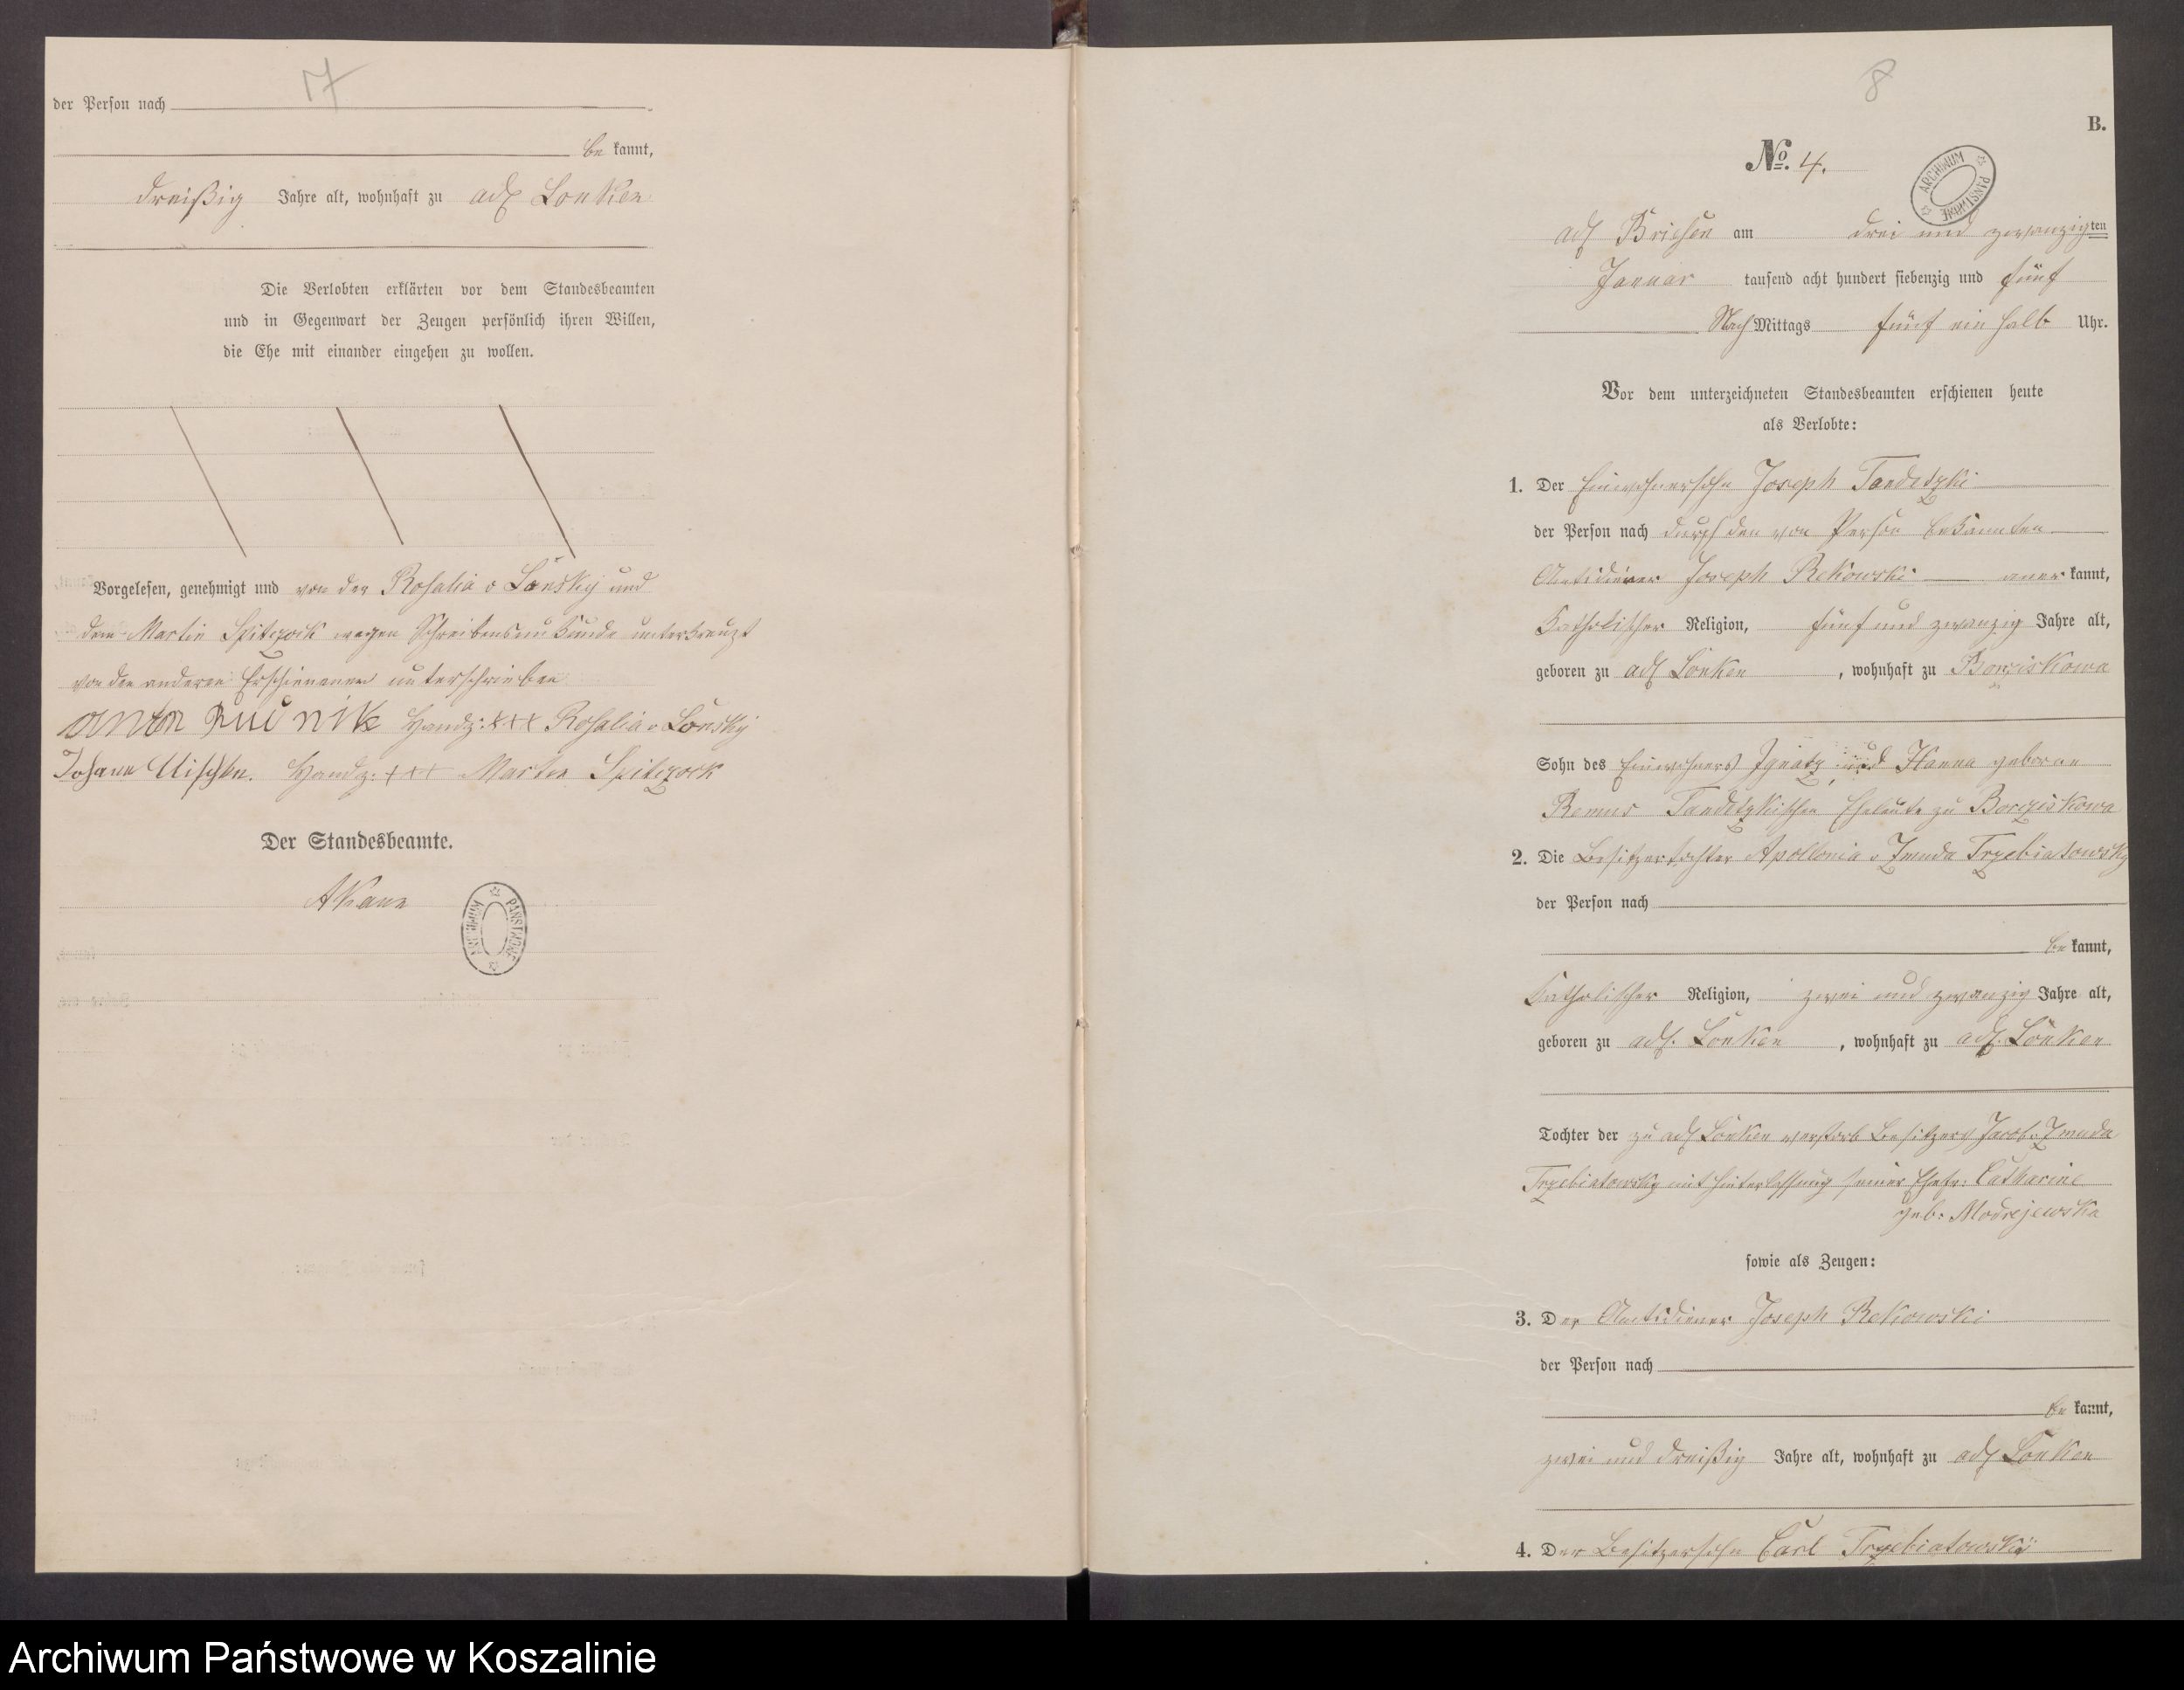 17
der Person nach
be kannt,
dreißig Jahre alt, wohnhaft zu adl Lonken
Die Verlobten erklärten vor dem Standesbeamten
und in Gegenwart der Zeugen persönlich ihren Willen,
die Ehe mit einander eingehen zu wollen.
Vorgelesen, genehmigt und von der Rosalia v Lonsky und
dem Martin Spiczock wegen Schreibensunkunde unterkreuzt
von den anderen Erschienenen unterschrieben
Handz: +++ Rosalia v Lonsky
Johann Handz: +++ Martin Spiczock
Der Standesbeamte.
ARCHIWUM PAŃSTWOWE
8
B.
No. 4.
ARCHIWUM PAŃSTWOWE
adl Briesen am drei und zwanzigten
Januar tausend acht hundert siebenzig und fünf
Nach Mittags fünf ein halb Uhr.
Vor dem unterzeichneten Standesbeamten erschienen heute
als Verlobte:
1. Der Einwohnersohn Joseph Tandetzki
der Person nach durch den von Person bekannten
Amtsdiener Joseph Rekowski aner kannt,
Katholischer Religion, fünf und zwanzig Jahre alt,
geboren zu adl Lonken, wohnhaft zu Borziskowa
Sohn des Einwohners Ignatz und Hanna geborne
Remus Tandetzkischen Eheleute zu Borziskowa
2. Die Besitzertochter Apollonia v Zmuda Trzebiatowsky
der Person nach
be kannt,
Katholischer Religion, zwei und zwanzig Jahre alt,
geboren zu adl. Lonken, wohnhaft zu adl. Lonken
Tochter der zu adl Lonken verstorb Besitzers Jacob v Zmuda
Trzebiatowsky mit Hinterlassung seiner Ehefr: Catharine
geb: Modrejewska
sowie als Zeugen:
3. Der Amtsdiener Joseph Rekowski
der Person nach
be kannt,
zwei und dreißig Jahre alt, wohnhaft zu adl Lonken
4. Der Besitzersohn Carl Trzebiatowski
Archiwum Państwowe w Koszalinie